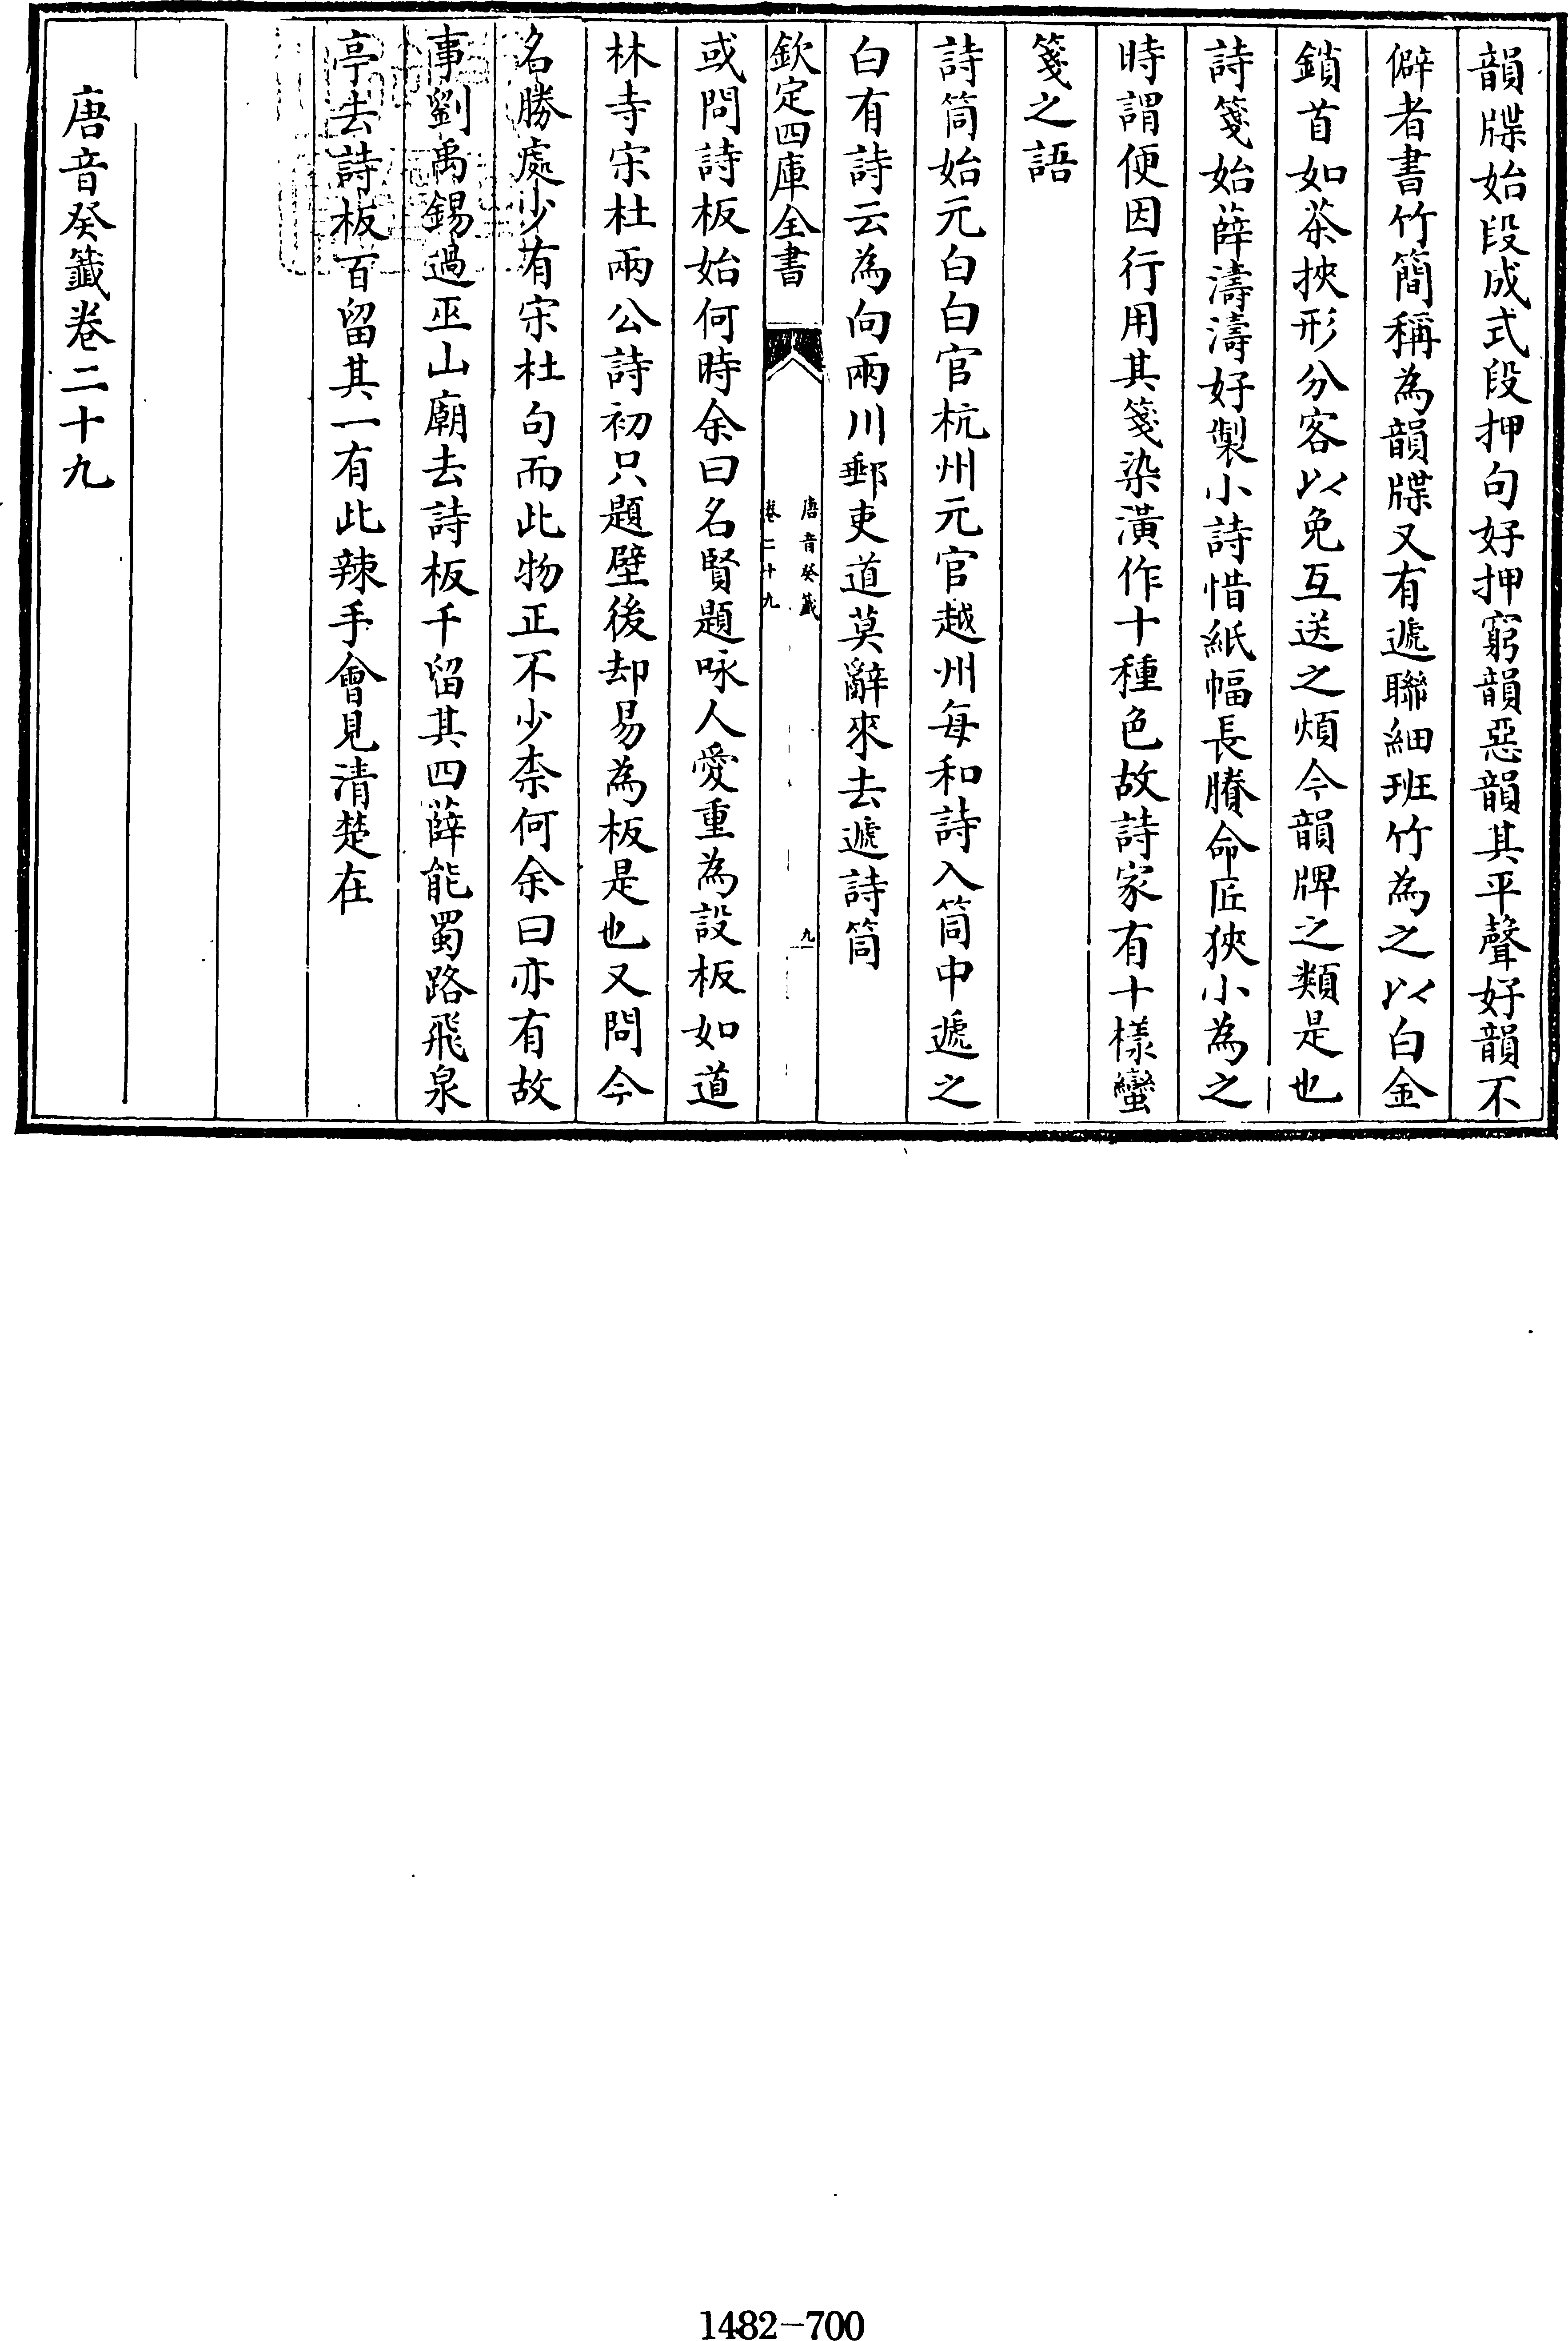 韻牒始段成式段押句好押窮韻惡韻其平聲好韻不
僻者書竹簡稱為韻牒又有遞聯細班竹為之以白金
鎖首如茶挾形分客以免互送之煩今韻牌之類是也
詩箋始薛濤濤好製小詩惜紙幅長賸命匠狹小為之
時謂便因行用其箋染潢作十種色故詩家有十樣蠻
箋之語
詩筒始元白白官杭州元官越州每和詩入筒中遞之
白有詩云為向兩川郵吏道莫辭來去遞詩筒
欽定四庫全書
唐音癸籤
卷二十九
九
或問詩板始何時余曰名賢題咏人愛重為設板如道
林寺宋杜兩公詩初只題壁後却易為板是也又問今
名勝處少有宋杜句而此物正不少柰何余曰亦有故
事劉禹錫過巫山廟去詩板千留其四薛能蜀路飛泉
亭去詩板百留其一有此辣手會見清楚在
唐音癸籤卷二十九
1482-700